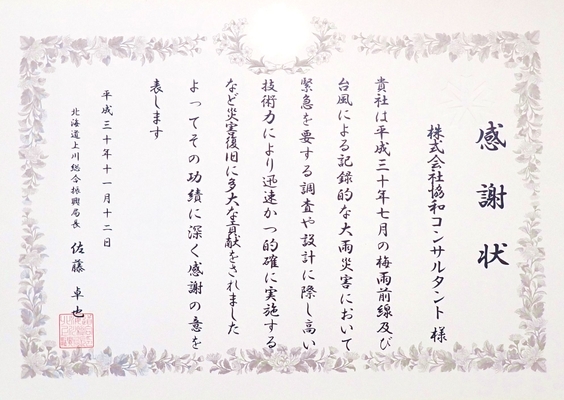 感謝状
株式会社協和コンサルタント 様
貴社は平成三十年七月の梅雨前線及び
台風による記録的な大雨災害において
緊急を要する調査や設計に際し高い
技術力により迅速かつ的確に実施する
など災害復旧に多大な貢献をされました
よってその功績に深く感謝の意を
表します
平成三十年十一月十二日
北海道上川総合振興局長 佐藤 卓也